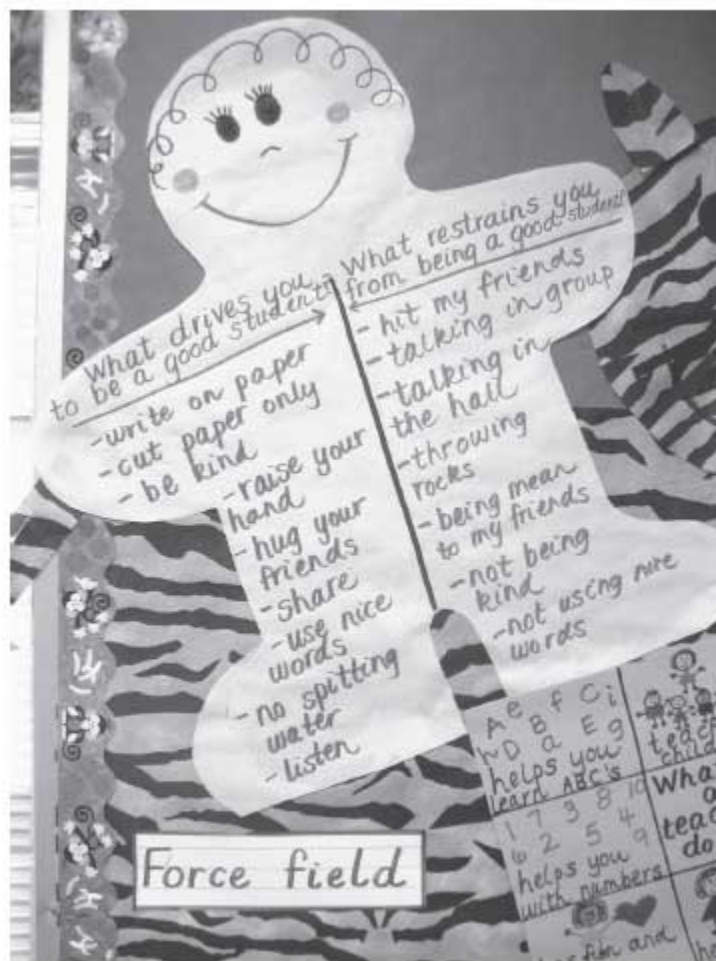 What drives you
to be a good student?
-write on paper
-cut paper only
-be kind
-raise your
hand
-hug your
friends
-share
-use nice
words
-no spitting
water
-listen
What restrains you
from being a good student?
-hit my friends
-talking in group
-talking in
the hall
-throwing
rocks
-being mean
to my friends
-not being
kind
-not using nice
words
Force field
A e f C i
h D B a E g
helps you
learn ABC's
1 7 3 8 10
6 2 5 4 9
helps you
with numbers
and
What
do